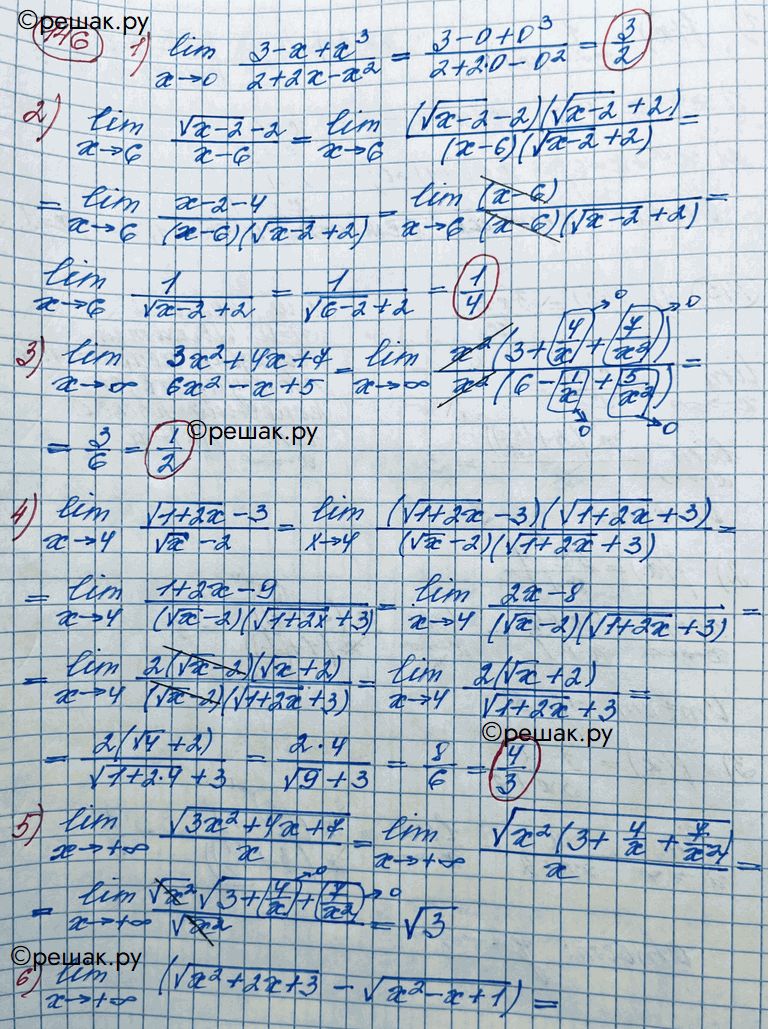 ©решак.ру
146
1) lim x→0 (3-x+x³)/(2+2x-x²) = (3-0+0³)/(2+2·0-0²) = 3/2
2) lim x→6 (√(x-2)-2)/(x-6) = lim x→6 ((√(x-2)-2)(√(x-2)+2))/((x-6)(√(x-2)+2)) =
= lim x→6 (x-2-4)/((x-6)(√(x-2)+2)) = lim x→6 (x-6)/((x-6)(√(x-2)+2)) =
lim x→6 1/(√(x-2)+2) = 1/(√(6-2)+2) = 1/4
3) lim x→∞ (3x²+4x+7)/(6x²-x+5) = lim x→∞ (x²(3+4/x+7/x²))/(x²(6-1/x+5/x²)) = →0 →0 →0 →0
= 3/6 = 1/2 ©решак.ру
4) lim x→4 (√(1+2x)-3)/(√x-2) = lim x→4 ((√(1+2x)-3)(√(1+2x)+3))/((√x-2)(√(1+2x)+3)) =
= lim x→4 (1+2x-9)/((√x-2)(√(1+2x)+3)) = lim x→4 (2x-8)/((√x-2)(√(1+2x)+3)) =
= lim x→4 (2(√x-2)(√x+2))/((√x-2)(√(1+2x)+3)) = lim x→4 (2(√x+2))/(√(1+2x)+3) =
©решак.ру
= (2(√4+2))/(√(1+2·4)+3) = (2·4)/(√9+3) = 8/6 = 4/3
5) lim x→+∞ √(3x²+4x+7)/x = lim x→+∞ √(x²(3+4/x+7/x²))/x =
= lim x→+∞ (√x² √(3+4/x+7/x²))/√x² = √3 →0 →0
©решак.ру
6) lim x→+∞ (√(x²+2x+3) - √(x²-x+1)) =